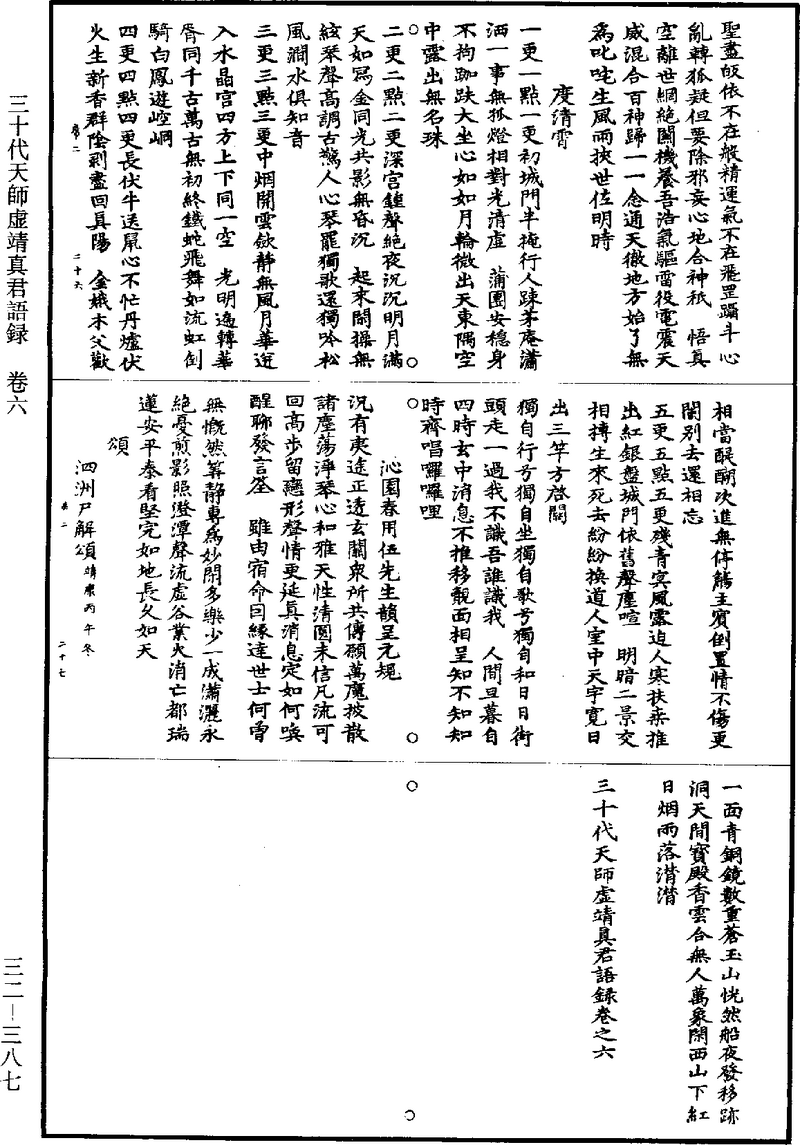 三十代天師虛靖真君語録　卷六
三二—三八七
聖盡皈依不在般精運氣不在飛罡躡斗心
亂轉狐疑但要除邪妄心地合神祇　悟真
空離世網絶關機養吾浩氣驅雷役電震天
威混合百神歸一一念通天徹地方始了無
爲叱咤生風雨挾世佐明時
度清霄
一更一點一更初城門半掩行人踈茅庵瀟
洒一事無孤燈相對光清虛　蒲團安穩身
不拘跏趺大坐心如如月輪微出天東隅空
中露出無名珠
二更二點二更深宫鍾聲絶夜沉沉明月滿
天如寫金同光共影無昏沉　起來閑操無
絃琴聲高調古驚人心琴罷獨歌還獨吟松
風澗水俱知音
三更三點三更中烟開雲歛静無風月華迸
入水晶宫四方上下同一空　光明遍轉華
胥同千古萬古無初終鐵蛇飛舞如流虹倒
騎白鳳遊崆峒
卷二
二十六
四更四點四更長伏牛送鼠心不忙丹爐伏
火生新香群陰剥盡回真陽　金娥木父歡
相當醍醐次進無停觴主賓倒置情不傷更
闌别去還相忘
五更五點五更殘青冥風露迫人寒扶桒推
出紅銀盤城門依舊聲塵喧　明暗二景交
相摶生來死去紛紛換道人室中天宇寬日
出三竿方啓關
獨自行兮獨自坐獨自歌兮獨自和日日街
頭走一過我不識吾誰識我　人間旦暮自
四時玄中消息不推移覿面相呈知不知知
時齊唱囉囉哩
沁園春用伍先生韻呈元規
況有夷途正透玄關衆所共傳願萬魔披散
諸塵蕩淨琴心和雅天性清圓未信凡流可
回高步留戀形聲情更延真消息定如何喚
醒聊發言筌　雖由宿命因緣達世士何曾
無慨然算静專爲妙閑多樂少一成瀟灑永
絶憂煎影照澄潭聲流虛谷業火消亡都瑞
蓮安平泰看堅完如地長久如天
頌
泗洲尸解頌靖康丙午冬
卷二
二十七
一面青銅鏡數重蒼玉山恍然船夜發移跡
洞天間寶殿香雲合無人萬象閑西山下紅
日烟雨落潸潸
三十代天師虛靖真君語録卷之六